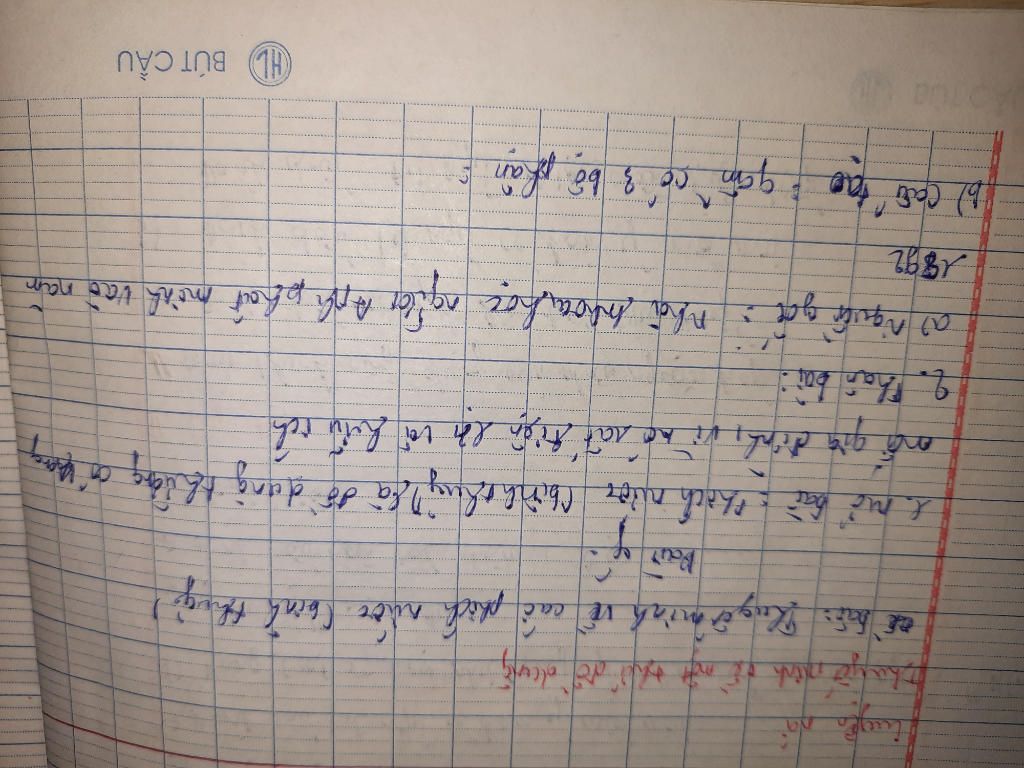 Luyện nó:
Thuyết minh về một thứ đồ dùng
Đề bài: Thuyết minh về cái phích nước (bình thuỷ)
Dàn ý:
1. Mở bài: Phích nước (bình thuỷ) là đồ dùng thường có trong
mỗi gia đình, vì nó rất tiện lợi và hữu ích
2. Thân bài:
a) Nguồn gốc: Nhà khoa học người Anh phát minh vào năm
1892
b) Cấu tạo: gồm có 3 bộ phận:
HL BÚT CẦU